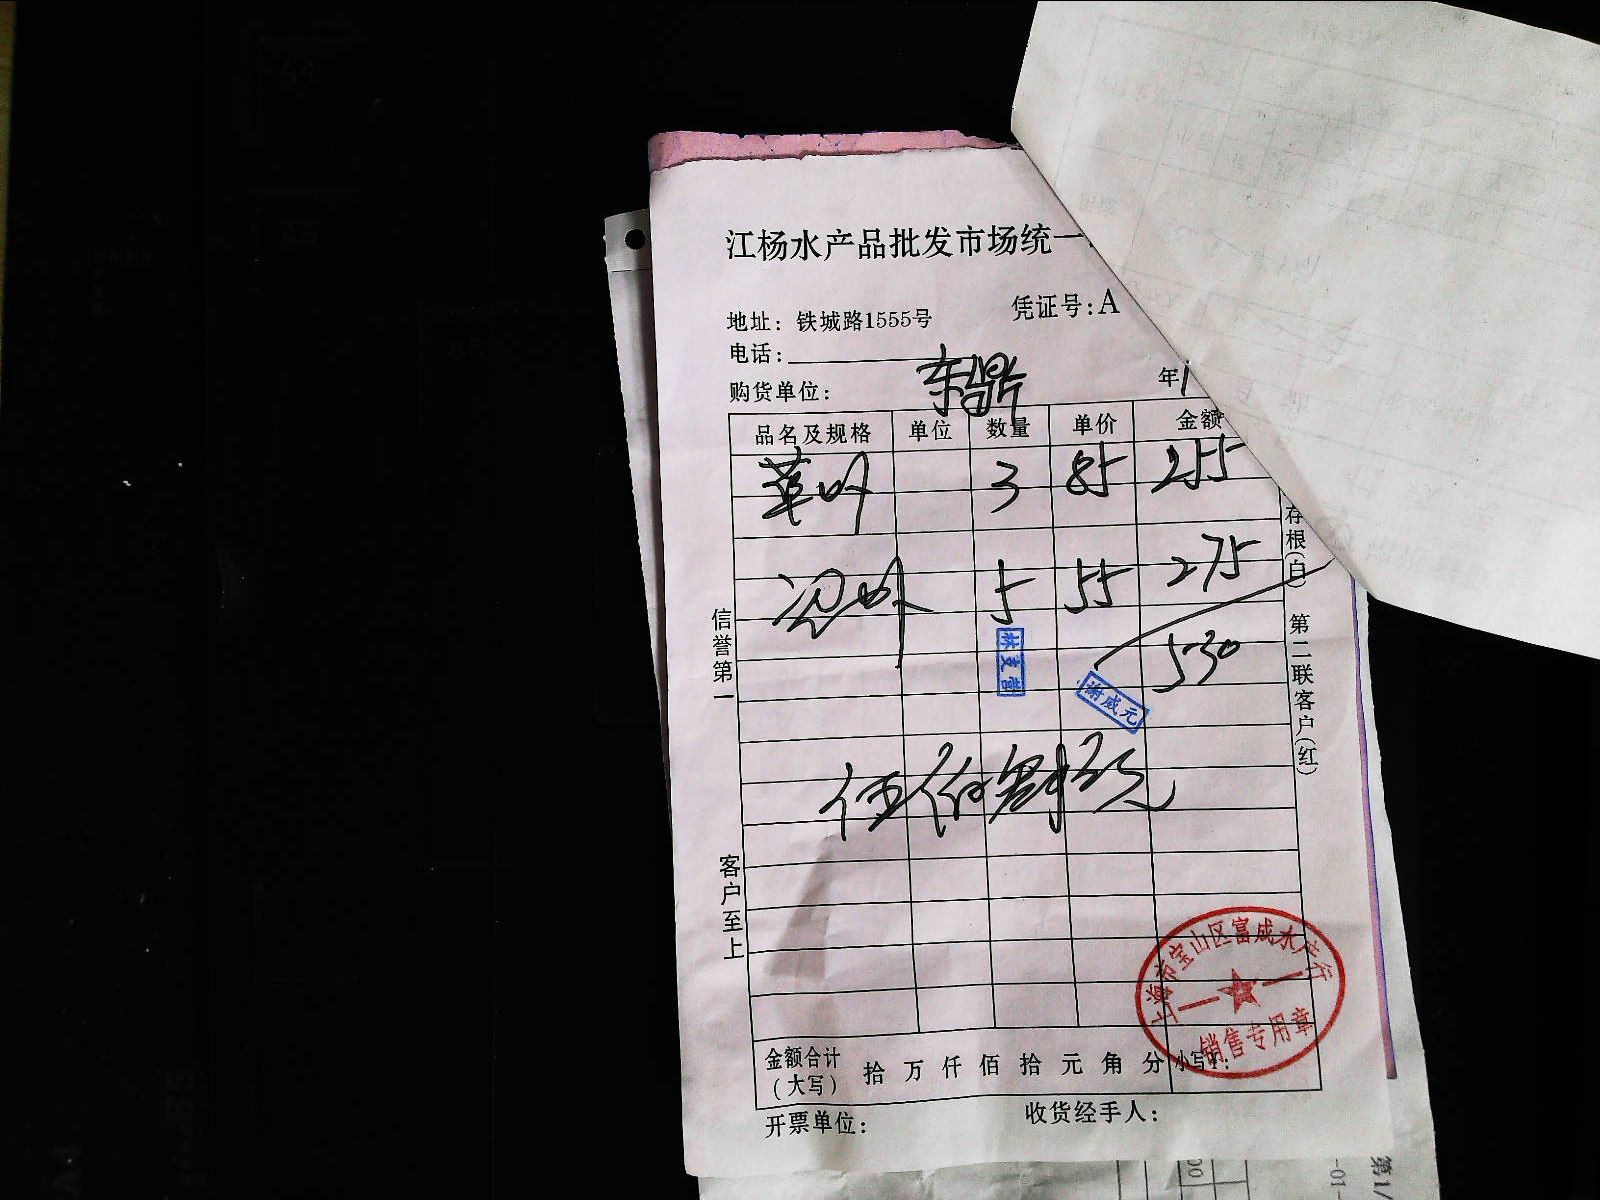 江杨水产品批发市场统一
凭证号:A
地址: 铁城路1555号
电话:
购货单位: 东鼎
年1
品名及规格 单位 数量 单价 金额
3 85 255
5 55 275
530
林支营
谢咸元
伍佰
信誉第一
客户至上
存根(白) 第二联客户(红)
上海市宝山区富成水产行
销售专用章
金额合计(大写) 拾 万 仟 佰 拾 元 角 分 小写¥:
开票单位: 收货经手人: